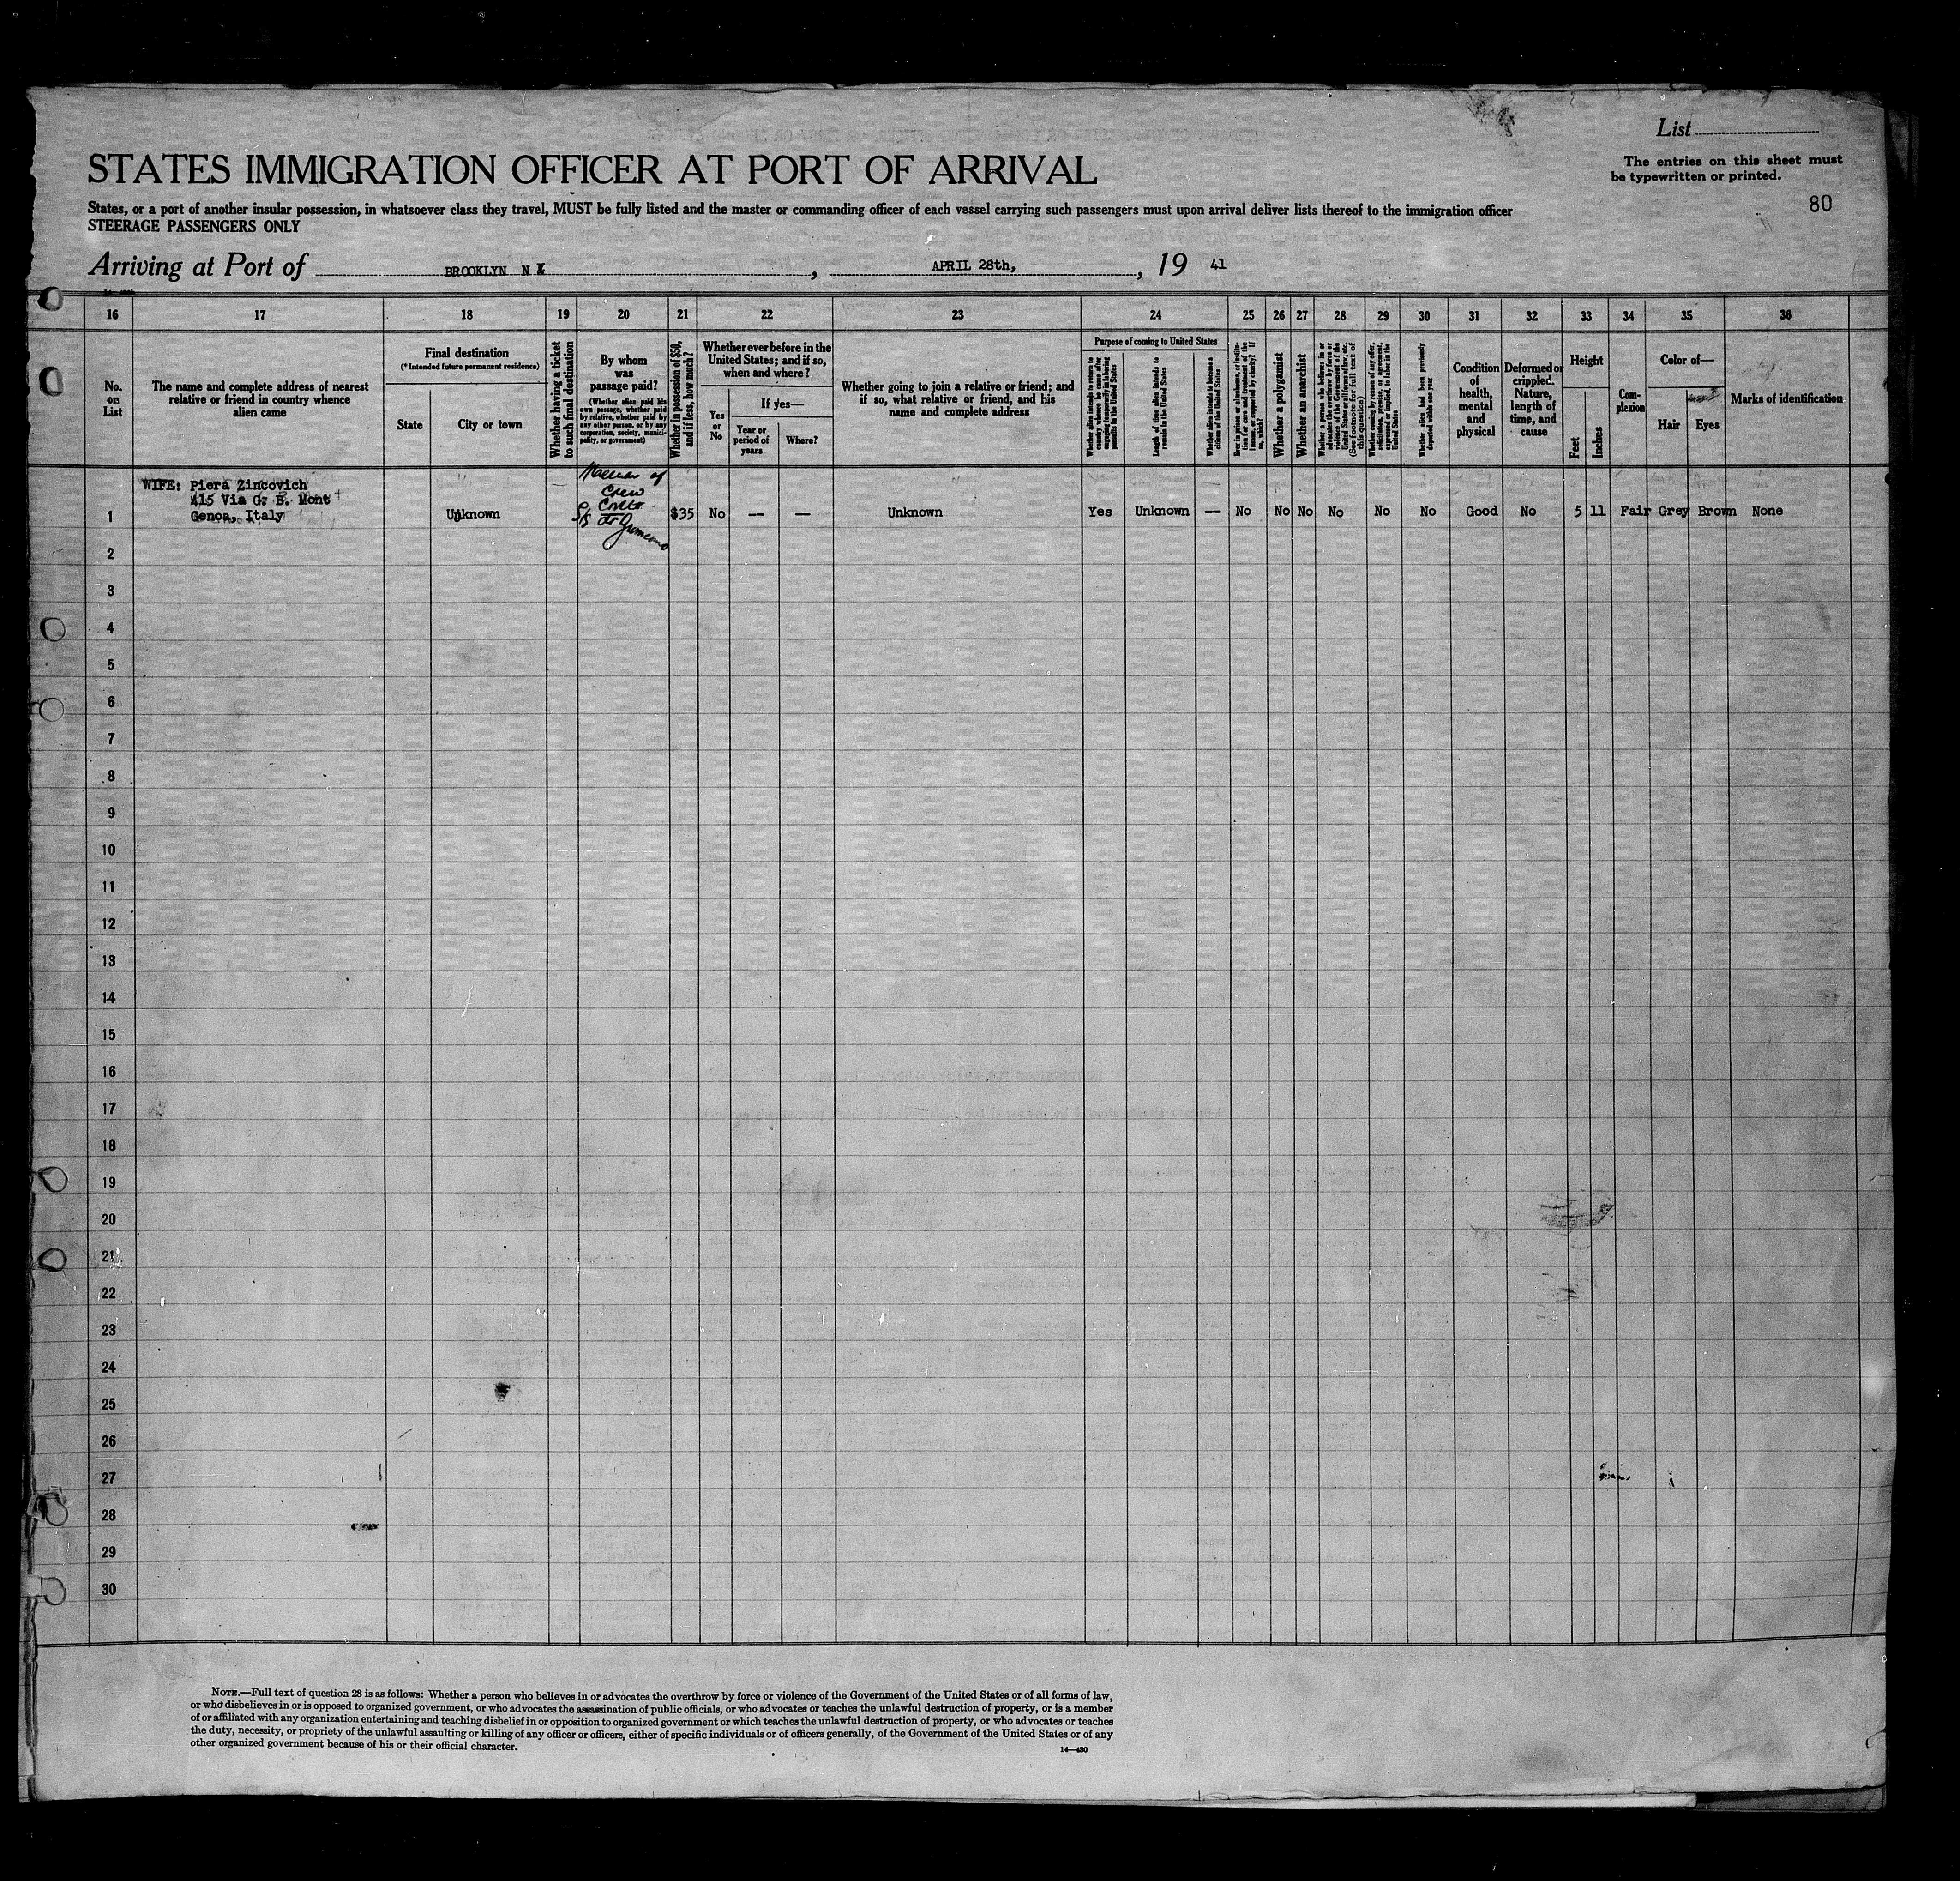 List
STATES IMMIGRATION OFFICER AT PORT OF ARRIVAL
The entries on this sheet must
be typewritten or printed.
80
States, or a port of another insular possession, in whatsoever class they travel, MUST be fully listed and the master or commanding officer of each vessel carrying such passengers must upon arrival deliver lists thereof to the immigration officer
STEERAGE PASSENGERS ONLY
Arriving at Port of BROOKLYN N Y, APRIL 28th, 19 41
16 17 18 19 20 21 22 23 24 25 26 27 28 29 30 31 32 33 34 35 36
No.
on
List
The name and complete address of nearest
relative or friend in country whence
alien came
Final destination
(*Intended future permanent residence)
State
City or town
Whether having a ticket
to such final destination
By whom
was
passage paid?
(Whether alien paid his
own passage, whether paid
by relative, whether paid by
any other person, or by any
corporation, society, munici-
pality, or government)
Whether in possession of $50,
and if less, how much?
Whether ever before in the
United States; and if so,
when and where?
Yes
or
No
If yes—
Year or
period of
years
Where?
Whether going to join a relative or friend; and
if so, what relative or friend, and his
name and complete address
Purpose of coming to United States
Whether alien intends to return to
country whence he came after
engaging temporarily in laboring
pursuits in the United States
Length of time alien intends to
remain in the United States
Whether alien intends to become a
citizen of the United States
Ever in prison or almshouse, or institu-
tion for care and treatment of the
insane, or supported by charity? If
so, which?
Whether a polygamist
Whether an anarchist
Whether a person who believes in or
advocates the overthrow by force or
violence of the Government of the
United States or all forms of law, etc.
(See footnote for full text of
this question)
Whether coming by reason of any offer,
solicitation, promise, or agreement,
expressed or implied, to labor in the
United States
Whether alien had been previously
deported within one year
Condition
of
health,
mental
and
physical
Deformed or
crippled.
Nature,
length of
time, and
cause
Height
Feet
Inches
Com-
plexion
Color of—
Hair
Eyes
Marks of identification
WIFE: Piera Zincovich
415 Via G. B. Mont
Genoa, Italy
Member of
Crew
1 Unknown $35 No — — Unknown Yes Unknown — No No No No No No Good No 5 11 Fair Grey Brown None
2
3
4
5
6
7
8
9
10
11
12
13
14
15
16
17
18
19
20
21
22
23
24
25
26
27
28
29
30
NOTE.—Full text of question 28 is as follows: Whether a person who believes in or advocates the overthrow by force or violence of the Government of the United States or of all forms of law,
or who disbelieves in or is opposed to organized government, or who advocates the assassination of public officials, or who advocates or teaches the unlawful destruction of property, or is a member
of or affiliated with any organization entertaining and teaching disbelief in or opposition to organized government or which teaches the unlawful destruction of property, or who advocates or teaches
the duty, necessity, or propriety of the unlawful assaulting or killing of any officer or officers, either of specific individuals or of officers generally, of the Government of the United States or of any
other organized government because of his or their official character.
14—430